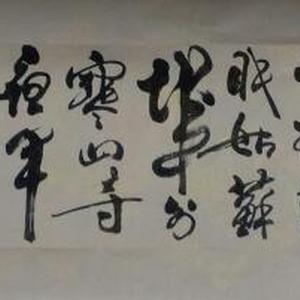 眠姑蘇
城外
寒山寺
夜半